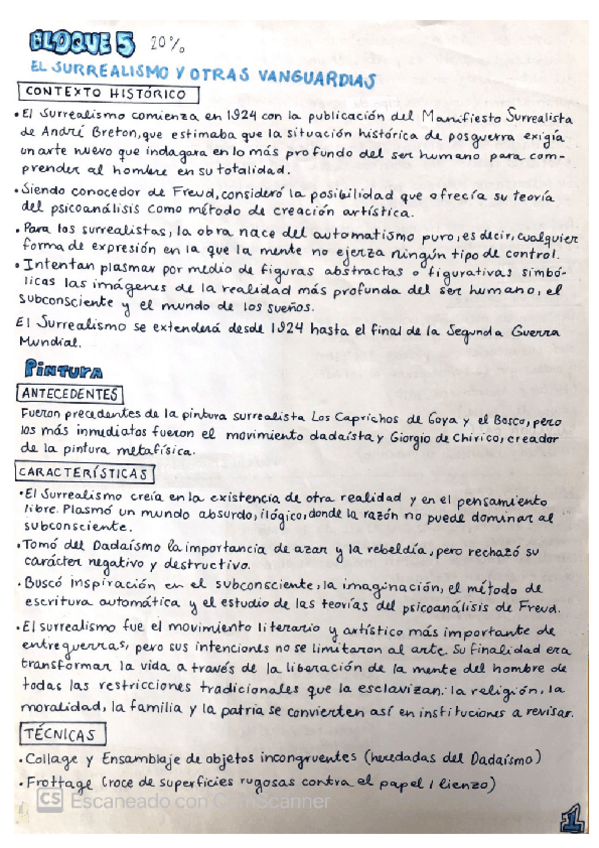 BLOQUE 5 20%
EL SURREALISMO Y OTRAS VANGUARDIAS
CONTEXTO HISTÓRICO
• El Surrealismo comienza en 1924 con la publicación del Manifiesto Surrealista
de André Breton, que estimaba que la situación histórica de posguerra exigía
un arte nuevo que indagara en lo más profundo del ser humano para com-
prender al hombre en su totalidad.
• Siendo conocedor de Freud, consideró la posibilidad que ofrecía su teoría
del psicoanálisis como método de creación artística.
• Para los surrealistas, la obra nace del automatismo puro, es decir, cualquier
forma de expresión en la que la mente no ejerza ningún tipo de control.
• Intentan plasmar por medio de figuras abstractas o figurativas simbó-
licas las imágenes de la realidad más profunda del ser humano, el
subconsciente y el mundo de los sueños.
El Surrealismo se extenderá desde 1924 hasta el final de la Segunda Guerra
Mundial.
PINTURA
ANTECEDENTES
Fueron precedentes de la pintura surrealista Los Caprichos de Goya y el Bosco, pero
los más inmediatos fueron el movimiento dadaísta y Giorgio de Chirico, creador
de la pintura metafísica.
CARACTERÍSTICAS
• El Surrealismo creía en la existencia de otra realidad y en el pensamiento
libre. Plasmó un mundo absurdo, ilógico, donde la razón no puede dominar al
subconsciente.
• Tomó del Dadaísmo la importancia de azar y la rebeldía, pero rechazó su
carácter negativo y destructivo.
• Buscó inspiración en el subconsciente, la imaginación, el método de
escritura automática y el estudio de las teorías del psicoanálisis de Freud.
• El surrealismo fue el movimiento literario y artístico más importante de
entreguerras, pero sus intenciones no se limitaron al arte. Su finalidad era
transformar la vida a través de la liberación de la mente del hombre de
todas las restricciones tradicionales que la esclavizan: la religión, la
moralidad, la familia y la patria se convierten así en instituciones a revisar.
TÉCNICAS
• Collage y Ensamblaje de objetos incongruentes (heredadas del Dadaísmo)
• Frottage (roce de superficies rugosas contra el papel / lienzo)
CS Escaneado con CamScanner
1